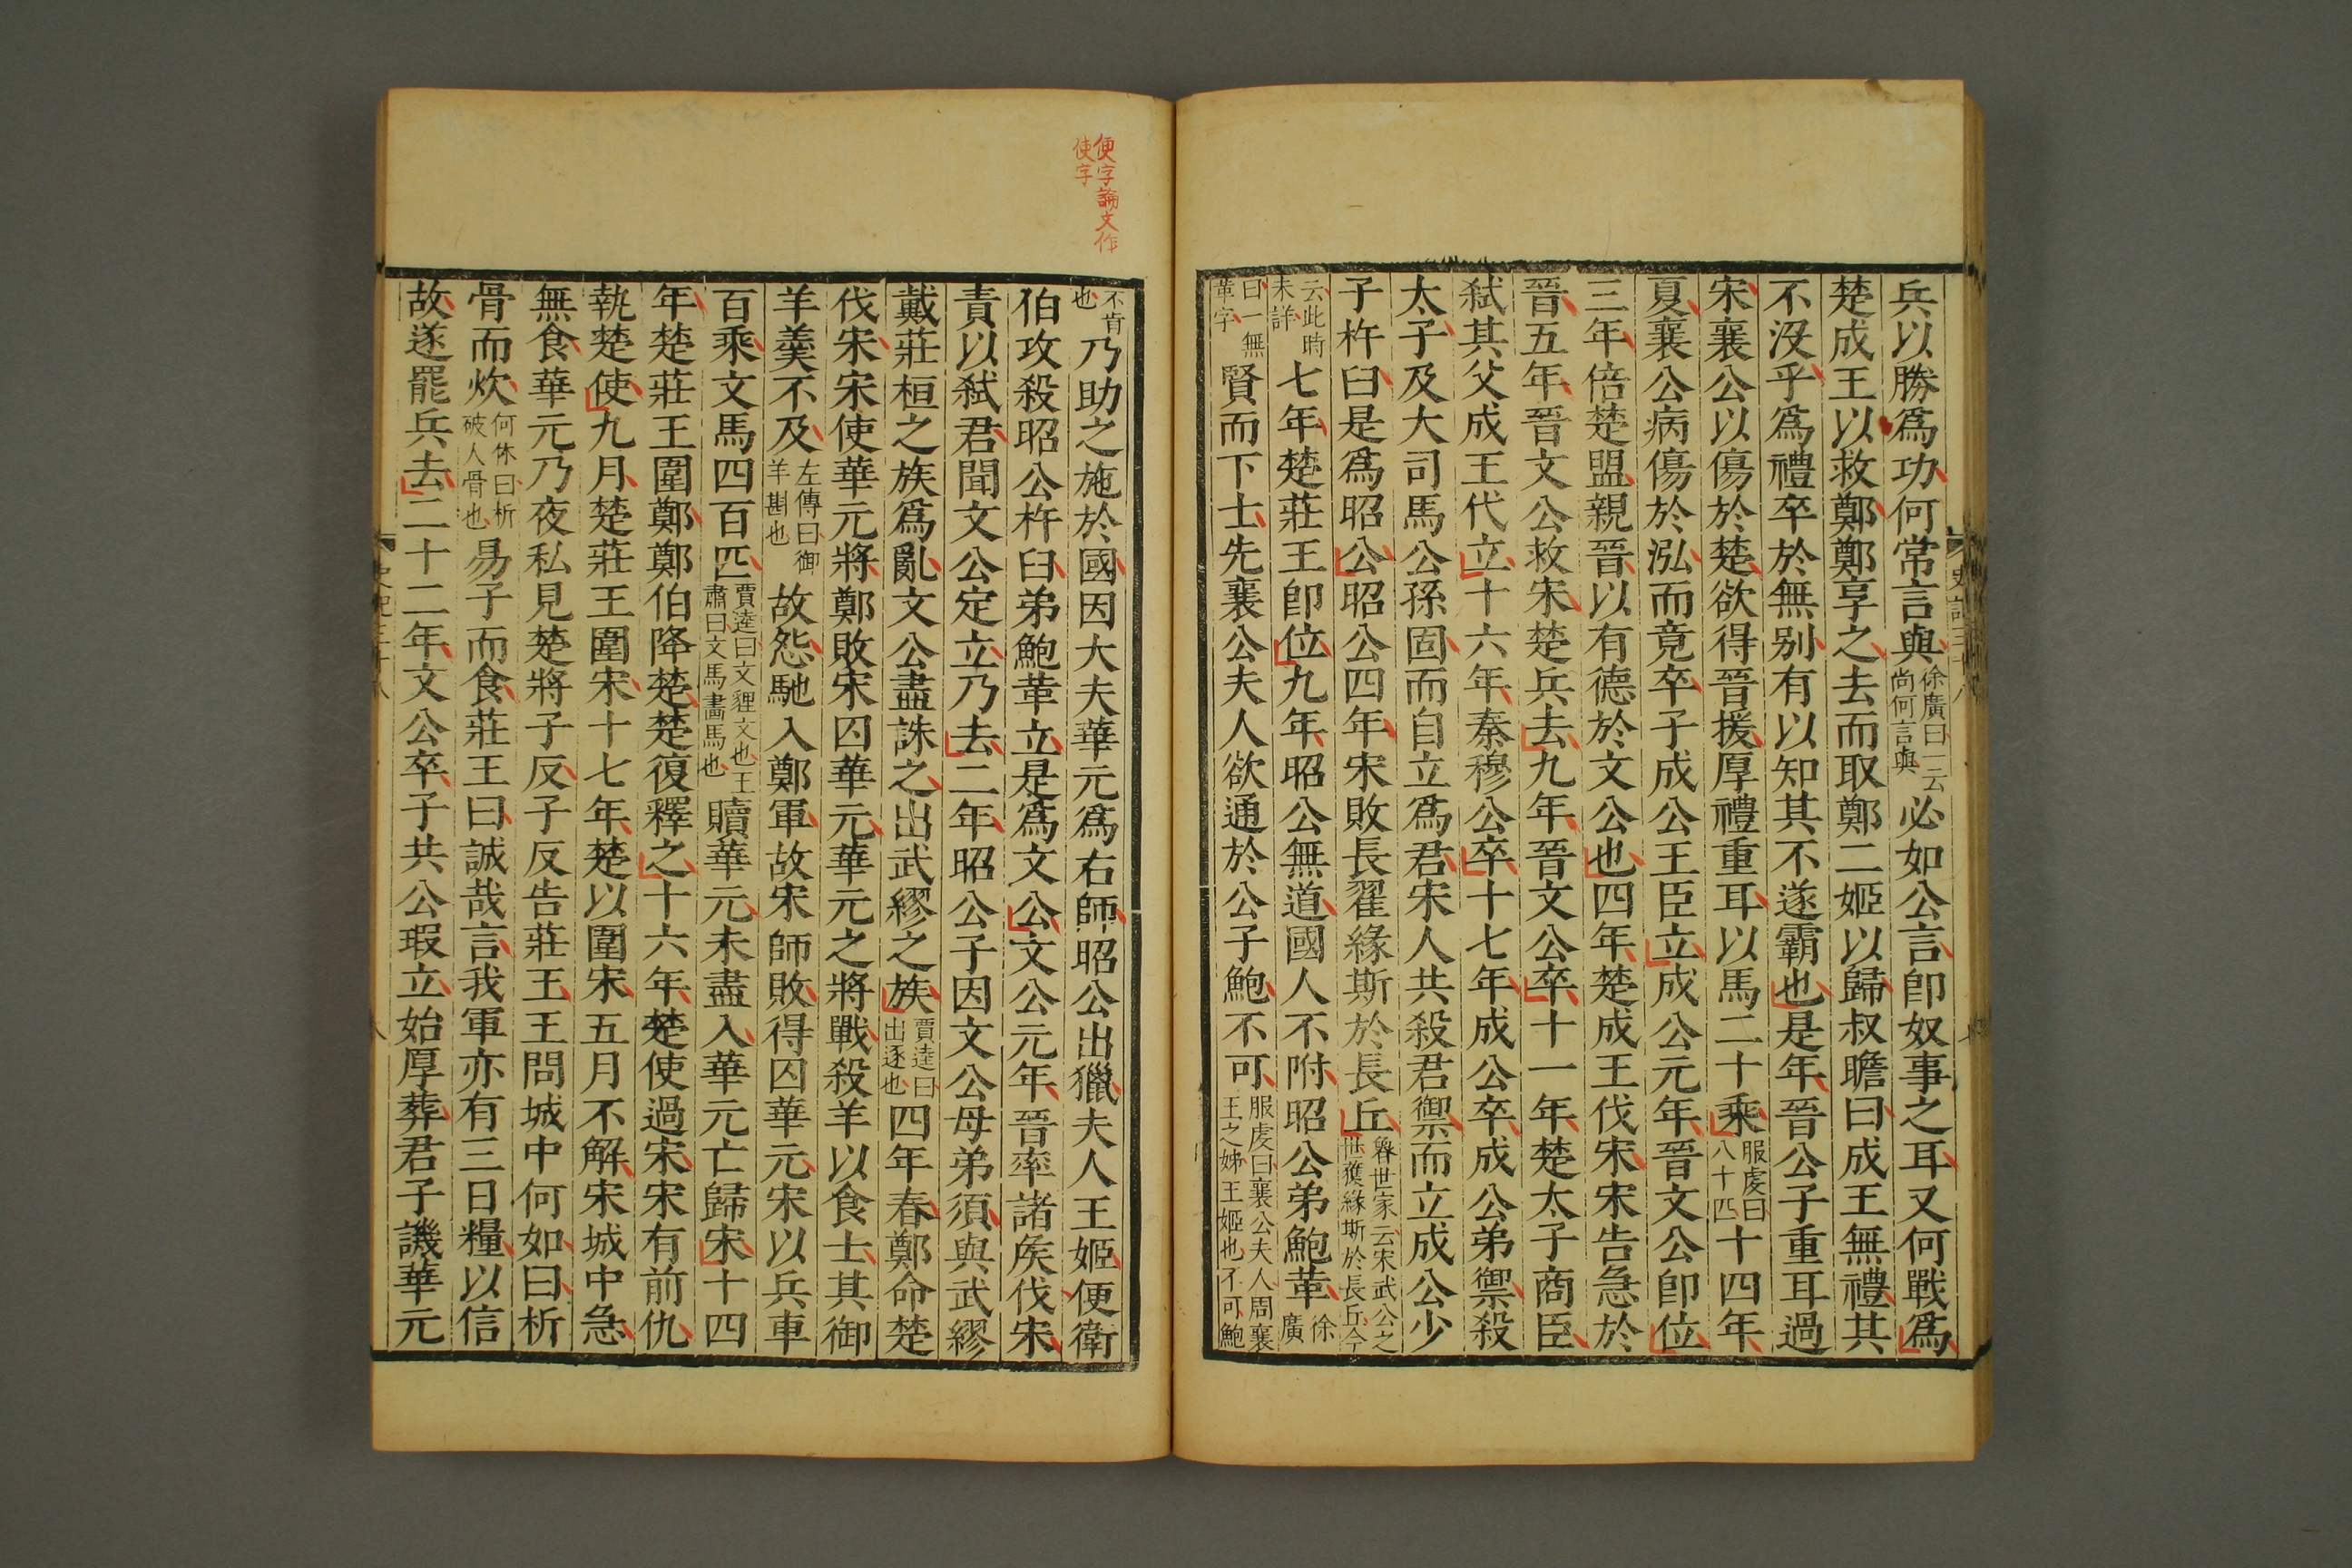 兵以勝爲功何常言與徐廣曰一云尚何言與必如公言即奴事之耳又何戰爲
楚成王以救鄭鄭享之去而取鄭二姬以歸叔瞻曰成王無禮其
不沒乎爲禮卒於無别有以知其不遂霸也是年晉公子重耳過
宋襄公以傷於楚欲得晉援厚禮重耳以馬二十乘服虔曰八十匹十四年
夏襄公病傷於泓而竟卒子成公王臣立成公元年晉文公即位
三年倍楚盟親晉以有德於文公也四年楚成王伐宋宋告急於
晉五年晉文公救宋楚兵去九年晉文公卒十一年楚太子商臣
弑其父成王代立十六年秦穆公卒十七年成公卒成公弟禦殺
太子及大司馬公孫固而自立爲君宋人共殺君禦而立成公少
子杵臼是爲昭公昭公四年宋敗長翟緣斯於長丘魯世家云宋武公之世獲緣斯於長丘今
云此時未詳七年楚莊王即位九年昭公無道國人不附昭公弟鮑革徐廣
曰一無革字賢而下士先襄公夫人欲通於公子鮑不可服虔曰襄公夫人周襄王之姊王姬也不可鮑
不肯也乃助之施於國因大夫華元爲右師昭公出獵夫人王姬便衛
伯攻殺昭公杵臼弟鮑革立是爲文公文公元年晉率諸矦伐宋
責以弑君聞文公定立乃去二年昭公子因文公母弟須與武繆
戴莊桓之族爲亂文公盡誅之出武繆之族賈逵曰出逐也四年春鄭命楚
伐宋宋使華元將鄭敗宋囚華元華元之將戰殺羊以食士其御
羊羹不及左傳曰御羊斟也故怨馳入鄭軍故宋師敗得囚華元宋以兵車
百乘文馬四百匹賈逵曰文貍文也王肅曰文馬畵馬也贖華元未盡入華元亡歸宋十四
年楚莊王圍鄭鄭伯降楚楚復釋之十六年楚使過宋宋有前仇
執楚使九月楚莊王圍宋十七年楚以圍宋五月不解宋城中急
無食華元乃夜私見楚將子反子反告莊王王問城中何如曰析
骨而炊何休曰析破人骨也易子而食莊王曰誠哉言我軍亦有三日糧以信
故遂罷兵去二十二年文公卒子共公瑕立始厚葬君子譏華元
便字論文作
使字